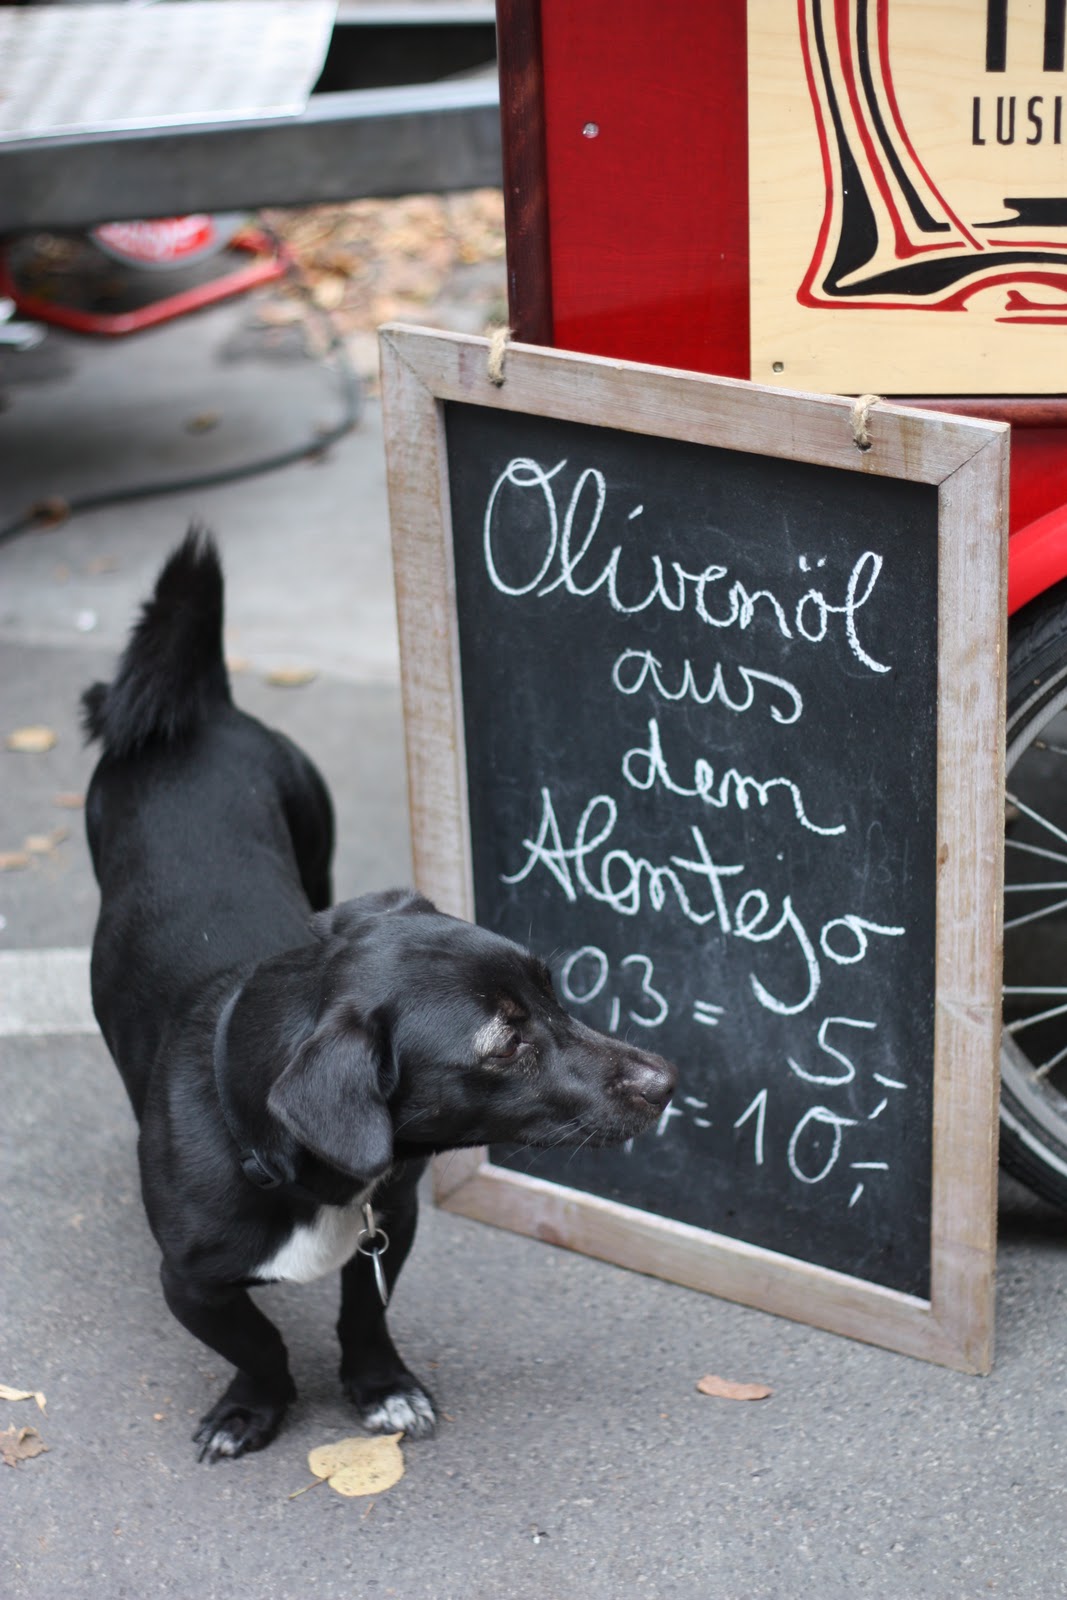 LUSI
Olivenöl
aus
dem
Alentejo
0,3 =
5,-
= 10,-